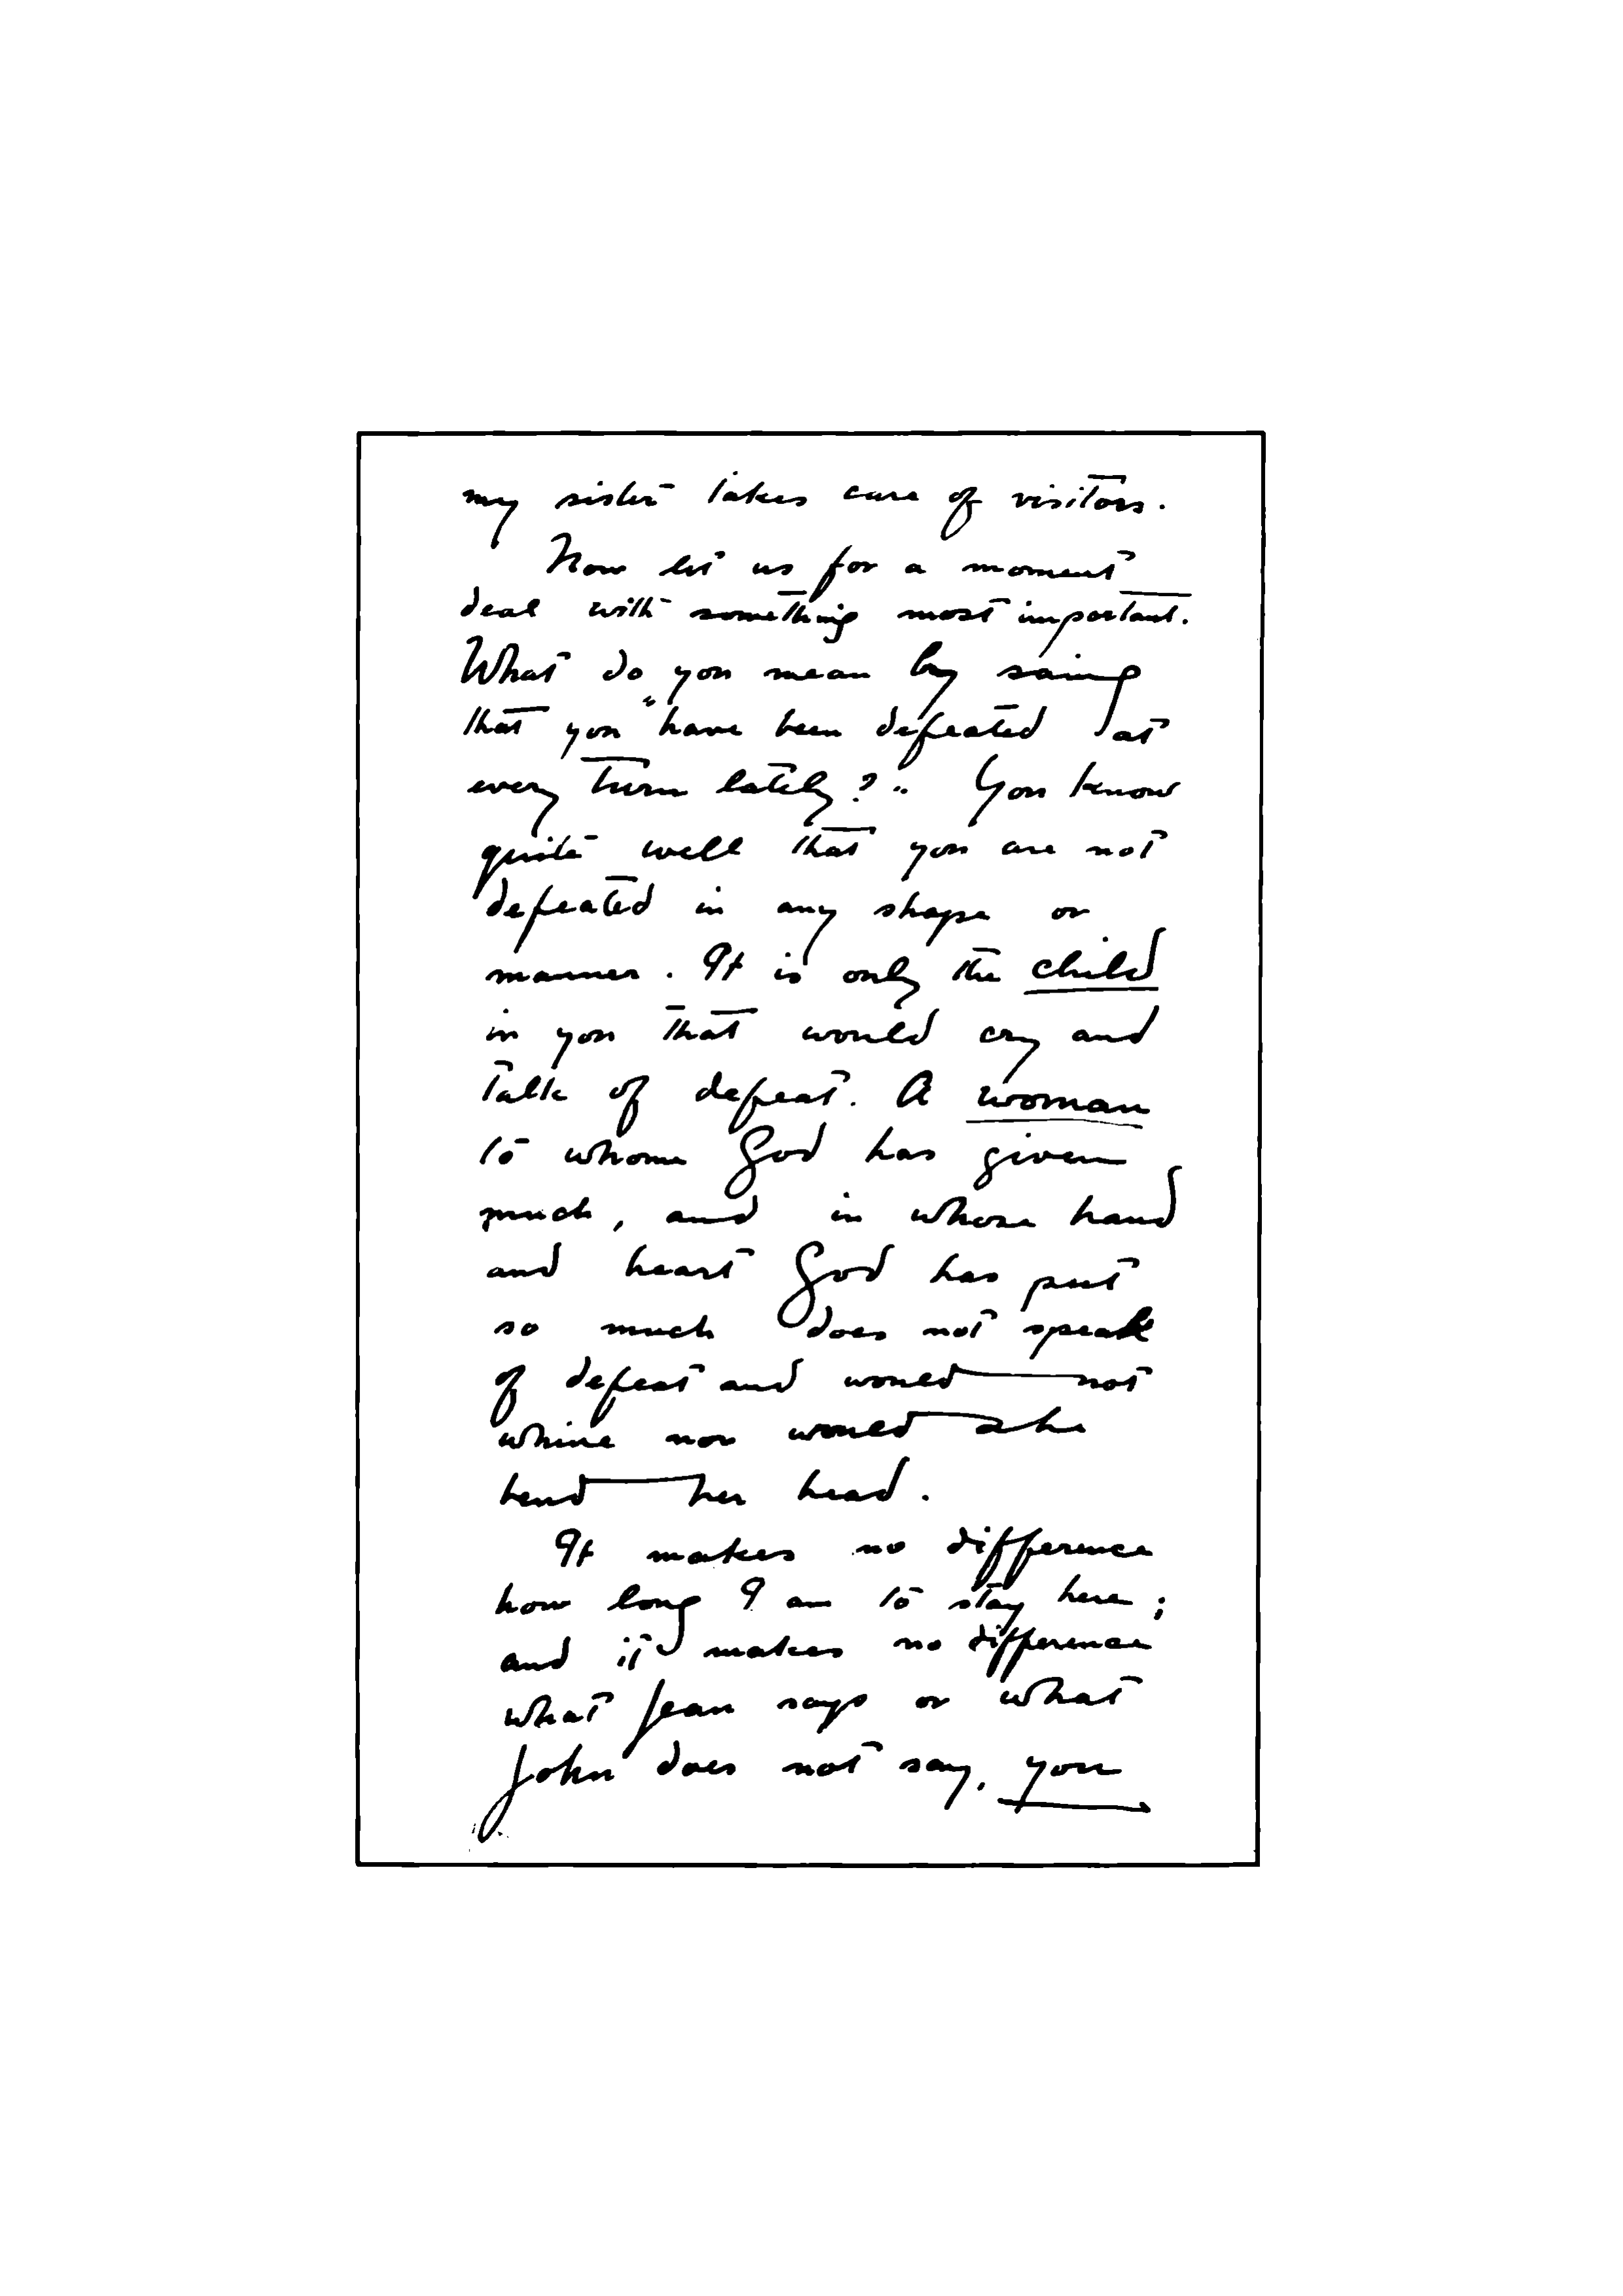 my sister takes care of visitors.
Now let us for a moment
deal with something most important.
What do you mean by saing
that you "have been defeated at
every turn lately?" You know
quite well that you are not
defeated in any shape or
manner. It is only the child
in you that would cry and
talk of defeat. A woman
to whome God has given
much, and in whose hand
and heart God has put
so much does not speak
of defeat and would not
whine nor would she
bend her head.
It makes no difference
how long I am to stay here;
and it makes no difference
what Jean says or what
John does not say, you